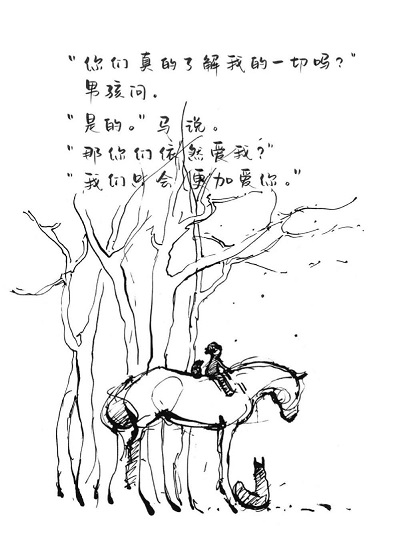 “你们真的了解我的一切吗？”
男孩问.
“是的。”马说。
“那你们依然爱我？”
“我们只会更加爱你。”